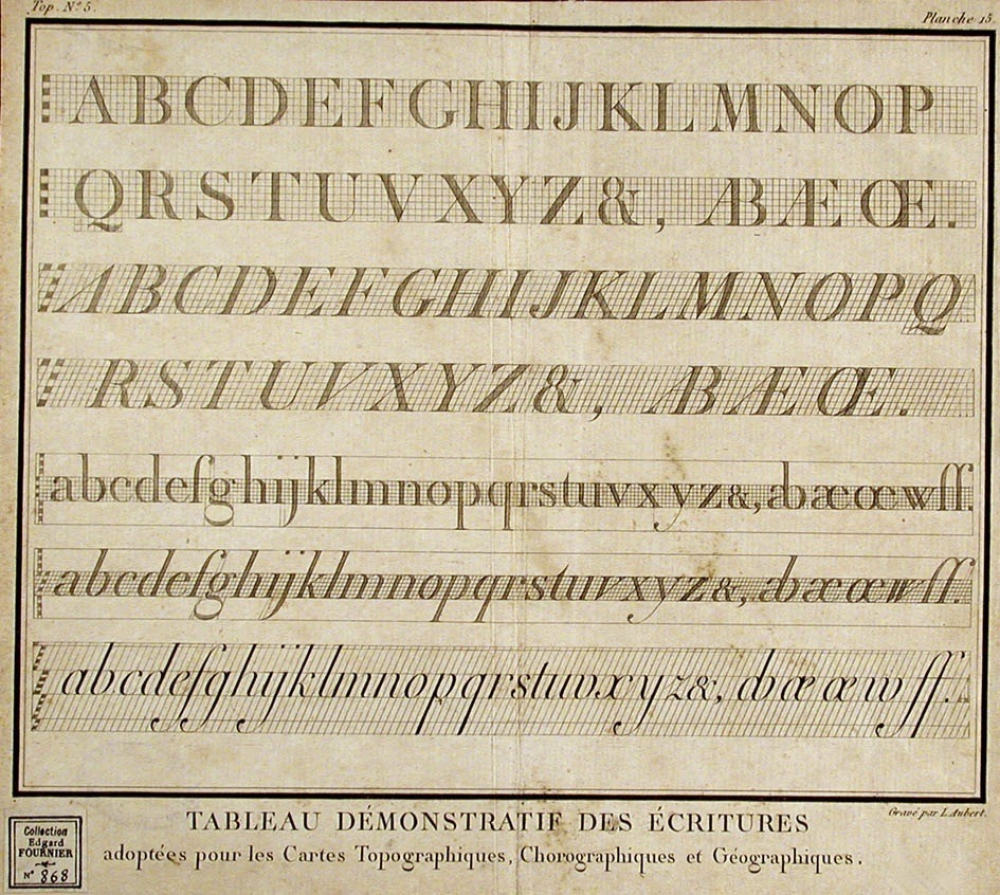 Top. Nº 5.
Planche 15.
ABCDEFGHIJKLMNOP
QRSTUVXYZ&, ABÆŒ.
ABCDEFGHIJKLMNOPQ
RSTUVXYZ&, ABÆŒ.
abcdefghijklmnopqrstuvxyz&, abæœwff.
abcdefghijklmnopqrstuvxyz&, abæœwff.
abcdefghijklmnopqrstuvxyz&, abæœwff.
Gravé par L. Aubert.
TABLEAU DÉMONSTRATIF DES ÉCRITURES
adoptées pour les Cartes Topographiques, Chorographiques et Géographiques.
Collection
Edgard
FOURNIER
Nº 868